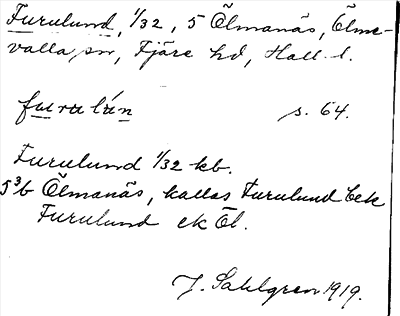 Furulund, 1/32, 5 Ölmanäs, Ölme-
valla sn, Fjäre hd, Hall. l.
furulún s. 64.
Furulund 1/32 kb.
5³b Ölmanäs, kallas Furulund Cek
Furulund ek Öl.
J. Sahlgren 1919.